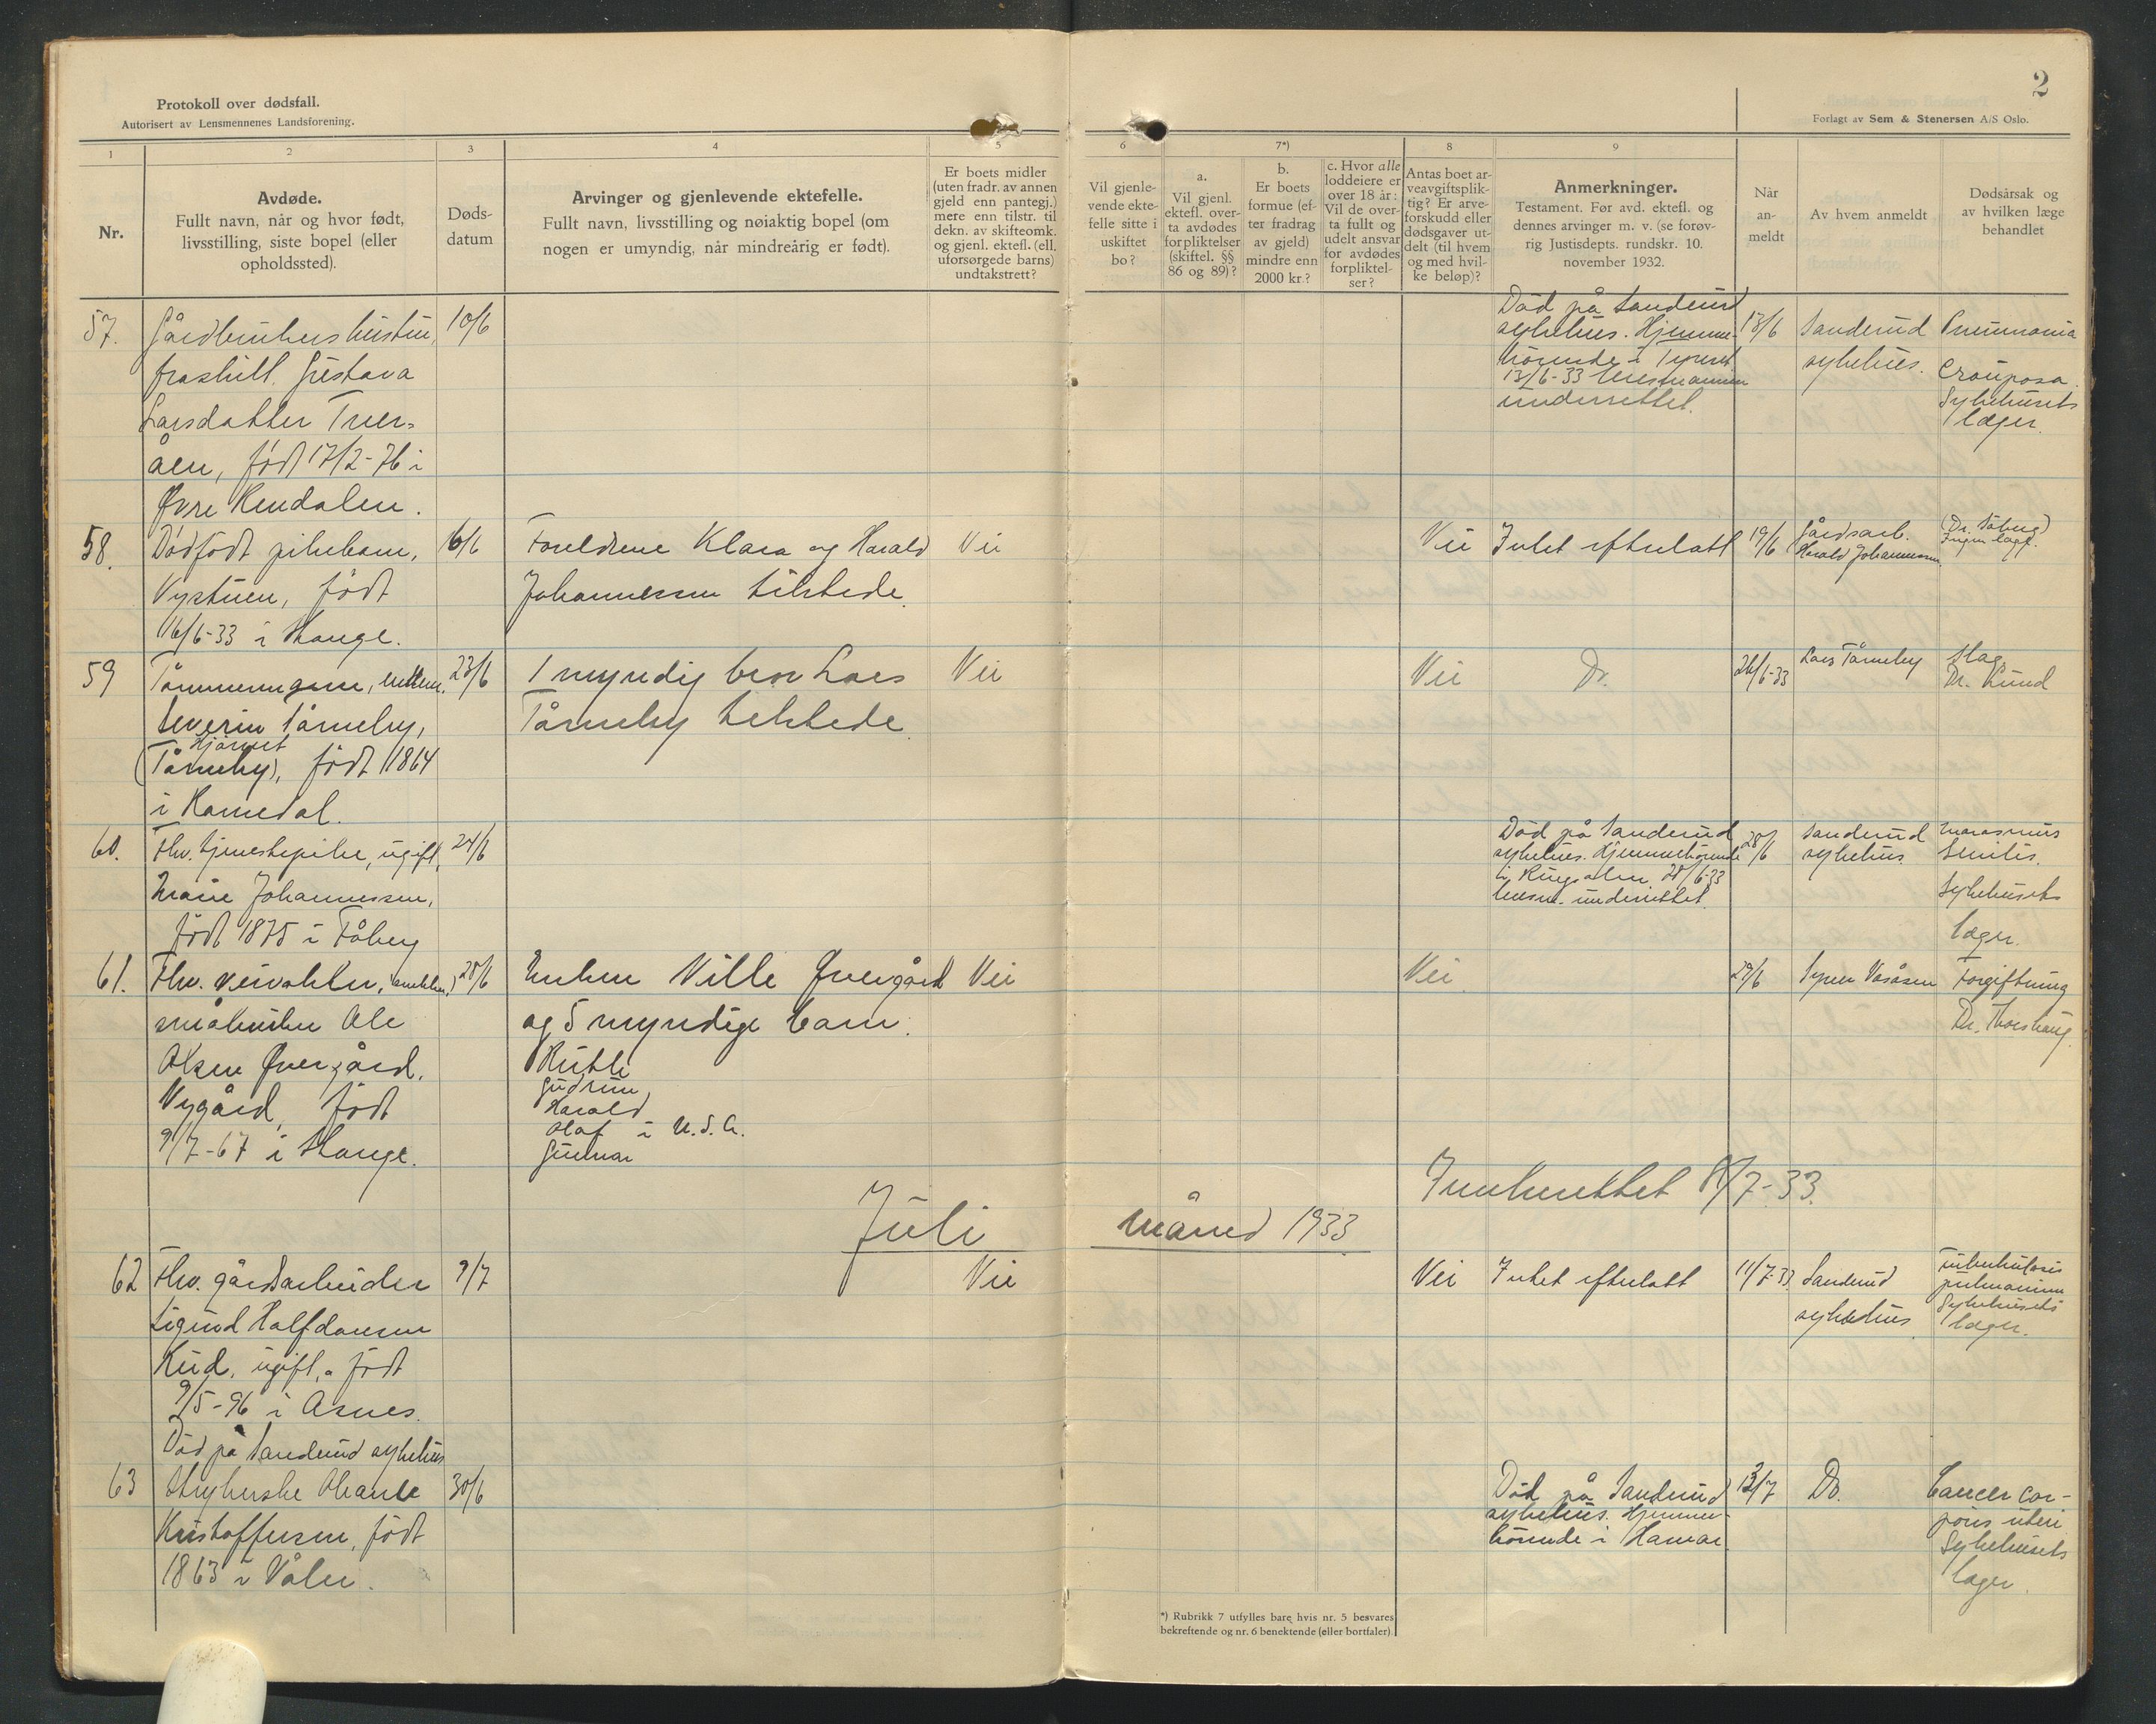 Protokoll over dødsfall.
Autorisert av Lensmennenes Landsforening.
2
Forlagt av Sem & Stenersen A/S Oslo.
1
2
3
4
5
6
7*)
8
9
Nr.
Avdøde.
Fullt navn, når og hvor født,
livsstilling, siste bopel (eller
opholdssted).
Døds-
datum
Arvinger og gjenlevende ektefelle.
Fullt navn, livsstilling og nøiaktig bopel (om
nogen er umyndig, når mindreårig er født).
Er boets midler
(uten fradr. av annen
gjeld enn pantegj.)
mere enn tilstr. til
dekn. av skifteomk.
og gjenl. ektefl. (ell.
uforsørgede barns)
undtakstrett?
Vil gjenle-
vende ekte-
felle sitte i
uskiftet
bo?
a.
Vil gjenl.
ektefl. over-
ta avdødes
forpliktelser
(skiftel. §§
86 og 89)?
b.
Er boets
formue (ef-
ter fradrag
av gjeld)
mindre enn
2000 kr.?
c. Hvor alle
loddeiere er
over 18 år:
Vil de over-
ta fullt og
udelt ansvar
for avdødes
forpliktel-
ser?
Antas boet ar-
veavgiftsplik-
tig? Er arve-
forskudd eller
dødsgaver ut-
delt (til hvem
og med hvil-
ke beløp)?
Anmerkninger.
Testament. Før avd. ektefl. og
dennes arvinger m. v. (se forøv-
rig Justisdepts. rundskr. 10.
november 1932.
Når
an-
meldt
Av hvem anmeldt
Dødsårsak og
av hvilken læge
behandlet
57.
Gårdbrukers hustru,
fraskilt. Gustava
Larsdatter Tver-
åen, født 17/2-76 i
Øvre Rendalen.
10/6
Død på Sanderud
sykehus. Hjemme-
hørende i Tynset
13/6-33 lensmannen
underrettet.
13/6
Sanderud
sykehus.
Pneumonia
Crouposa.
Sykehusets
læger.
58.
Dødfødt pikebarn,
Nystuen, født
16/6-33 i Stange.
16/6
Foreldrene Klara og Harald
Johannessen tilstede.
Nei
Nei
Intet efterlatt
19/6
Gårdsarb.
Harald Johannessen
(Dr. Taberg)
Ingen læge.
59
Tømmermann, enkem.
Severin Tårneby,
Hjørnet
(Tårneby), født 1864
i Romedal.
23/6
1 myndig bror Lars
Tårneby tilstede.
Nei
Nei
Do.
26/6-33
Lars Tårneby
Slag
Dr. Lund
60.
Fhv. tjenestepike, ugift,
Marie Johannessen,
født 1875 i Fåberg
24/6
Død på Sanderud
sykehus. Hjemmehørende
i Ringsaker 28/6-33
lensm. underrettet.
28/6
Sanderud
sykehus.
Marasmus
Senilis.
Sykehusets
læger.
61.
Fhv. veivokter,
småbruker Ole
Olsen Øvergård.
Nygård, født
9/7-67 i Stange.
28/6
Enken Nille Øvergård
og 5 myndige barn.
Ruth
Gudrun
Harald
Olaf i U.S.A.
Gunnar
Nei
Nei
29/6
Syver Vasåsen
Forgiftning
Dr. Thorshaug
Innberettet 8/7-33.
Juli måned 1933
62
Fhv. gårdsarbeider
Sigurd Halfdansen
Rud, ugift, født
9/5-96 i Åsnes.
Død på Sanderud sykehus
9/7
Nei
Nei
Intet efterlatt
11/7-33
Sanderud
sykehus
Tuberkulosis
pulmonum
Sykehusets
læger.
63
Strykerske Oleanle
Kristoffersen, født
1863 i Våler.
30/6
Død på Sanderud
sykehus. Hjemme-
hørende i Hamar
13/7
Do.
Cancer cor-
poris uteri
Sykehusets
læger.
*) Rubrikk 7 utfylles bare hvis nr. 5 besvares
bekreftende og nr. 6 benektende (eller bortfaler).